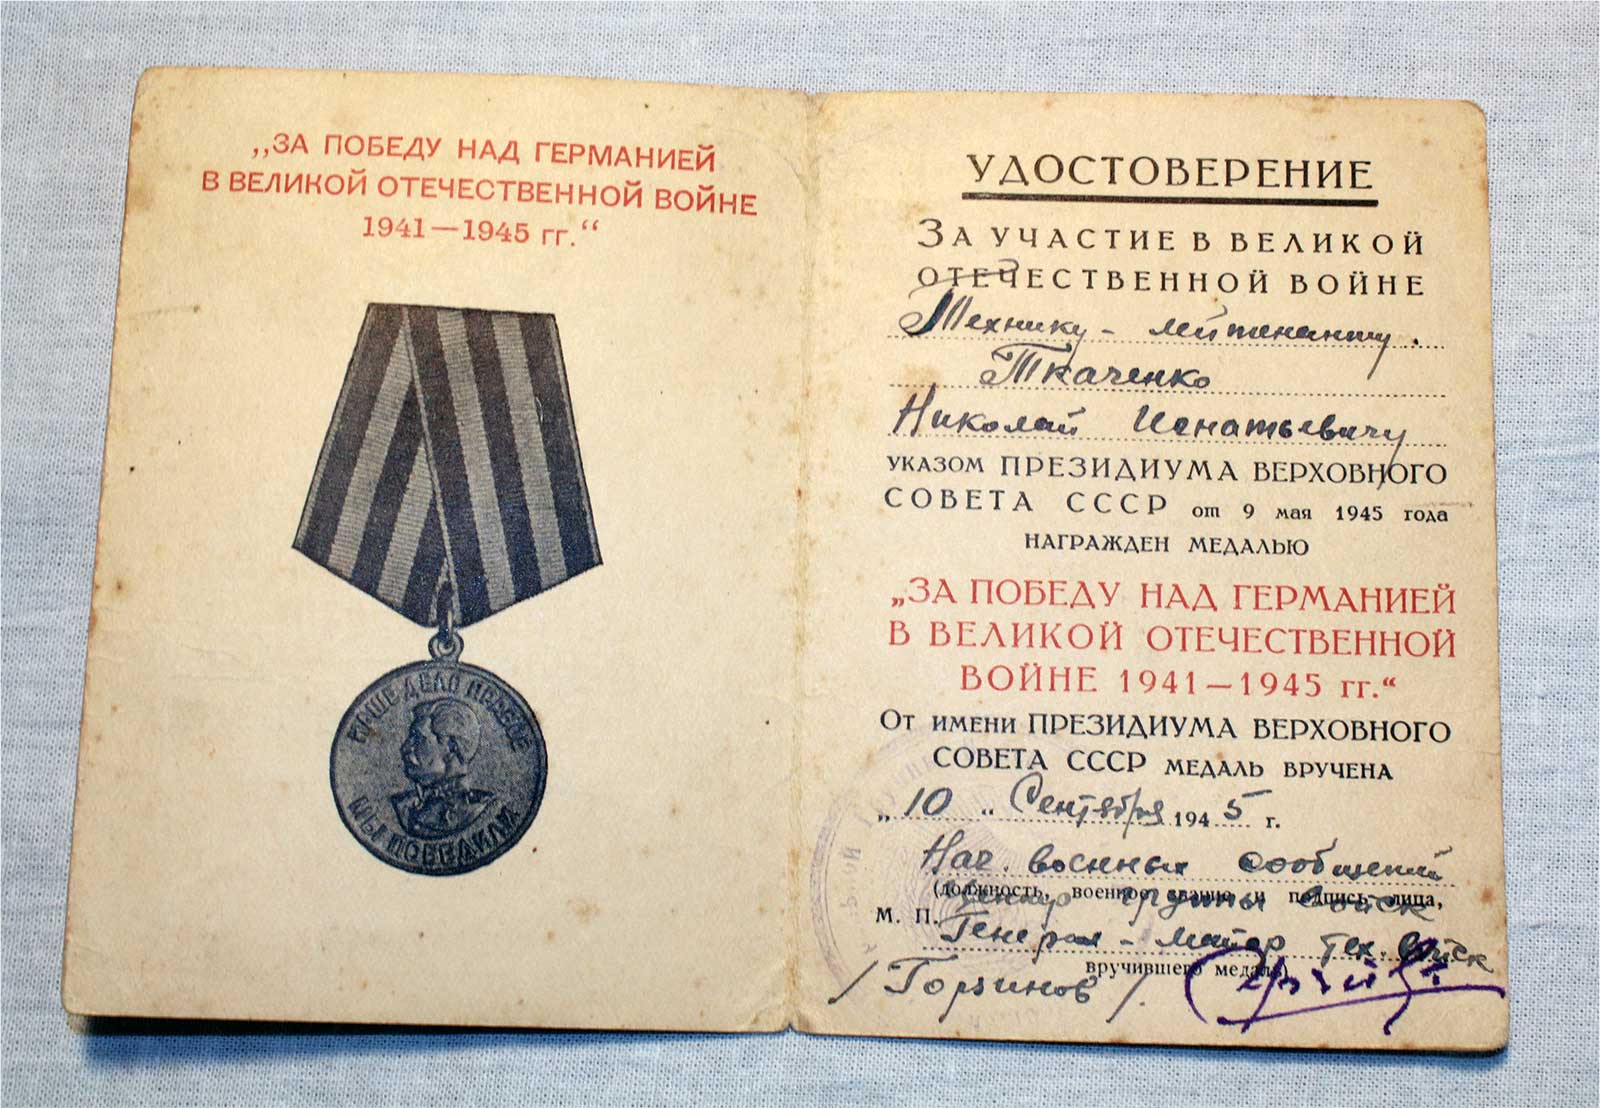 „ЗА ПОБЕДУ НАД ГЕРМАНИЕЙ
В ВЕЛИКОЙ ОТЕЧЕСТВЕННОЙ ВОЙНЕ
1941—1945 гг.“
НАШЕ ДЕЛО ПРАВОЕ
МЫ ПОБЕДИЛИ
УДОСТОВЕРЕНИЕ
ЗА УЧАСТИЕ В ВЕЛИКОЙ
ОТЕЧЕСТВЕННОЙ ВОЙНЕ
Технику-лейтенанту.
Ткаченко
Николай Игнатьевичу
УКАЗОМ ПРЕЗИДИУМА ВЕРХОВНОГО
СОВЕТА СССР от 9 мая 1945 года
НАГРАЖДЕН МЕДАЛЬЮ
„ЗА ПОБЕДУ НАД ГЕРМАНИЕЙ
В ВЕЛИКОЙ ОТЕЧЕСТВЕННОЙ
ВОЙНЕ 1941—1945 гг.“
ОТ ИМЕНИ ПРЕЗИДИУМА ВЕРХОВНОГО
СОВЕТА СССР МЕДАЛЬ ВРУЧЕНА
„10„ Сентября 1945 г.
Нач. военных сообщений
(должность, военное звание и подпись лица,
Центр группы войск
М. П.
Генерал-майор тех. войск
вручившего медаль)
/Горчинов/.